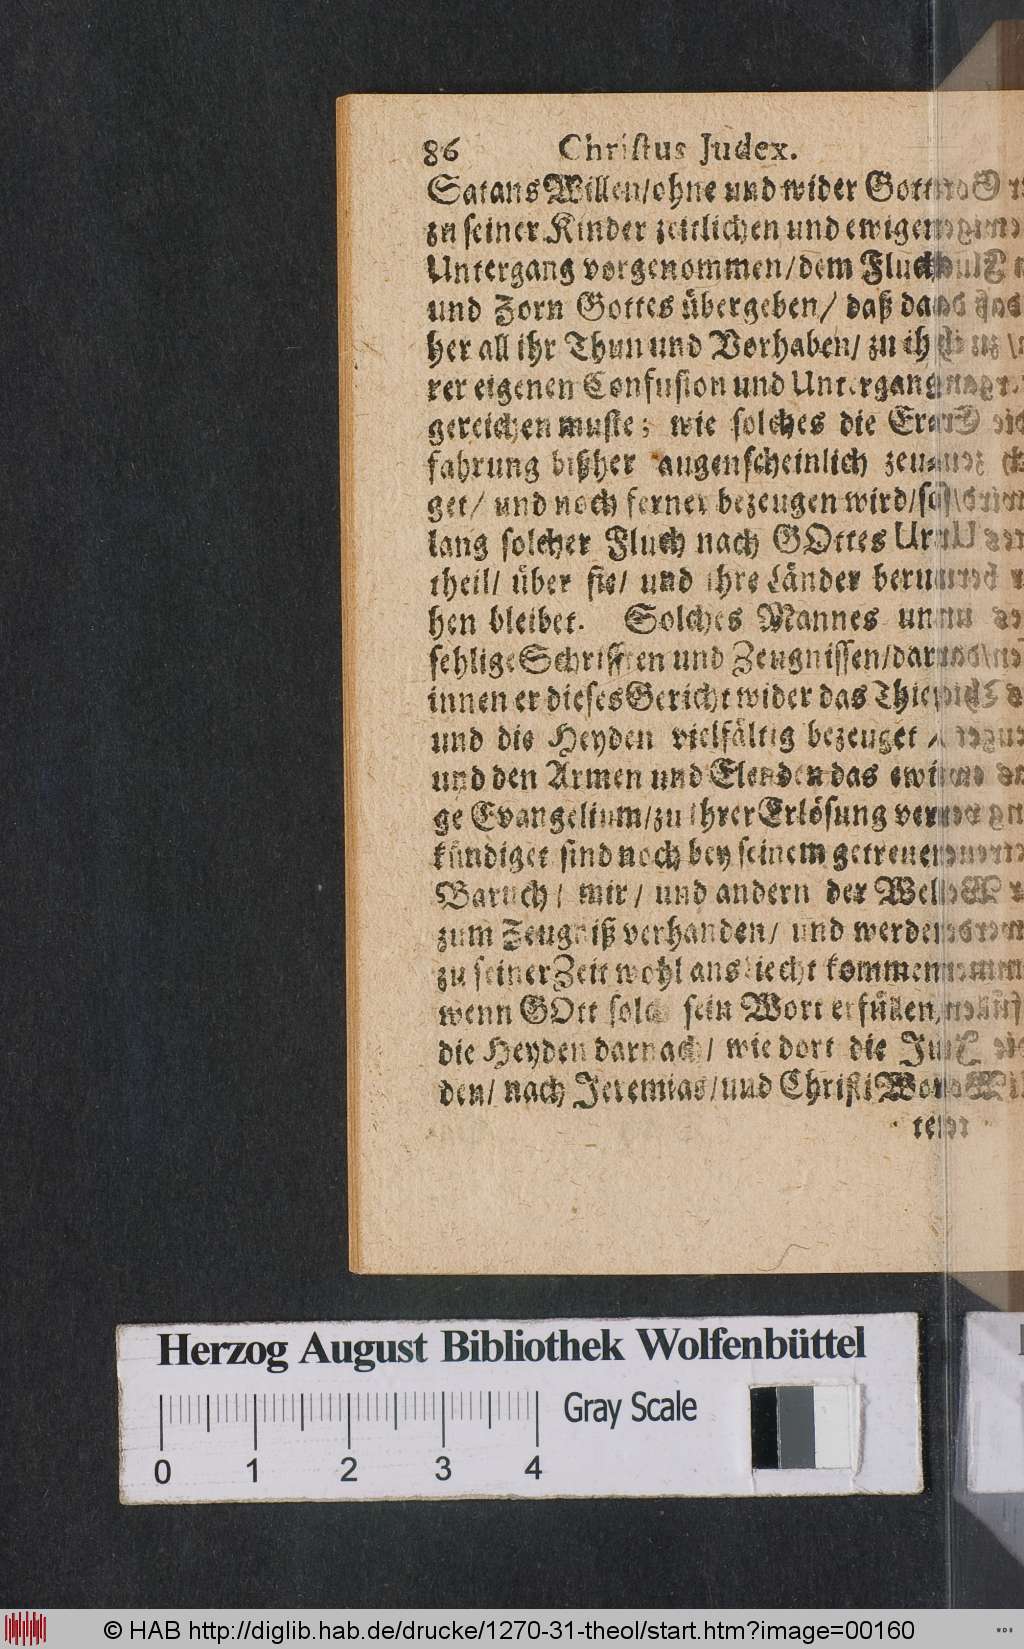 86 Christus Judex.
Satans Willen/ohne und wider Gott
zu seiner Kinder zeitlichen und ewigen
Untergang vorgenommen/dem Fluch
und Zorn Gottes übergeben/ daß da
her all ihr Thun und Vorhaben/ zu ih
rer eigenen Confusion und Untergang
gereichen muste; wie solches die Er
fahrung bißher augenscheinlich zeu
get/ und noch ferner bezeugen wird/so
lang solcher Fluch nach GOttes Ur
theil/ über sie/ und ihre Länder beru
hen bleibet. Solches Mannes un
sehlige Schrifften und Zeugnissen/dar
innen er dieses Gericht wider das Thier
und die Heyden vielfältig bezeuget /
und den Armen und Elenden das ewi
ge Evangelium/zu ihrer Erlösung ver
kündiget sind noch bey seinem getreuen
Baruch/ mir/ und andern der Welt
zum Zeugniß verhanden/ und werden
zu seiner Zeit wohl ans Liecht kommen
wenn GOtt solch sein Wort erfüllen,
die Heyden darnach/ wie dort die Jü
den/ nach Jeremias/und Christi Wort
Herzog August Bibliothek Wolfenbüttel
Gray Scale
0 1 2 3 4
© HAB http://diglib.hab.de/drucke/1270-31-theol/start.htm?image=00160